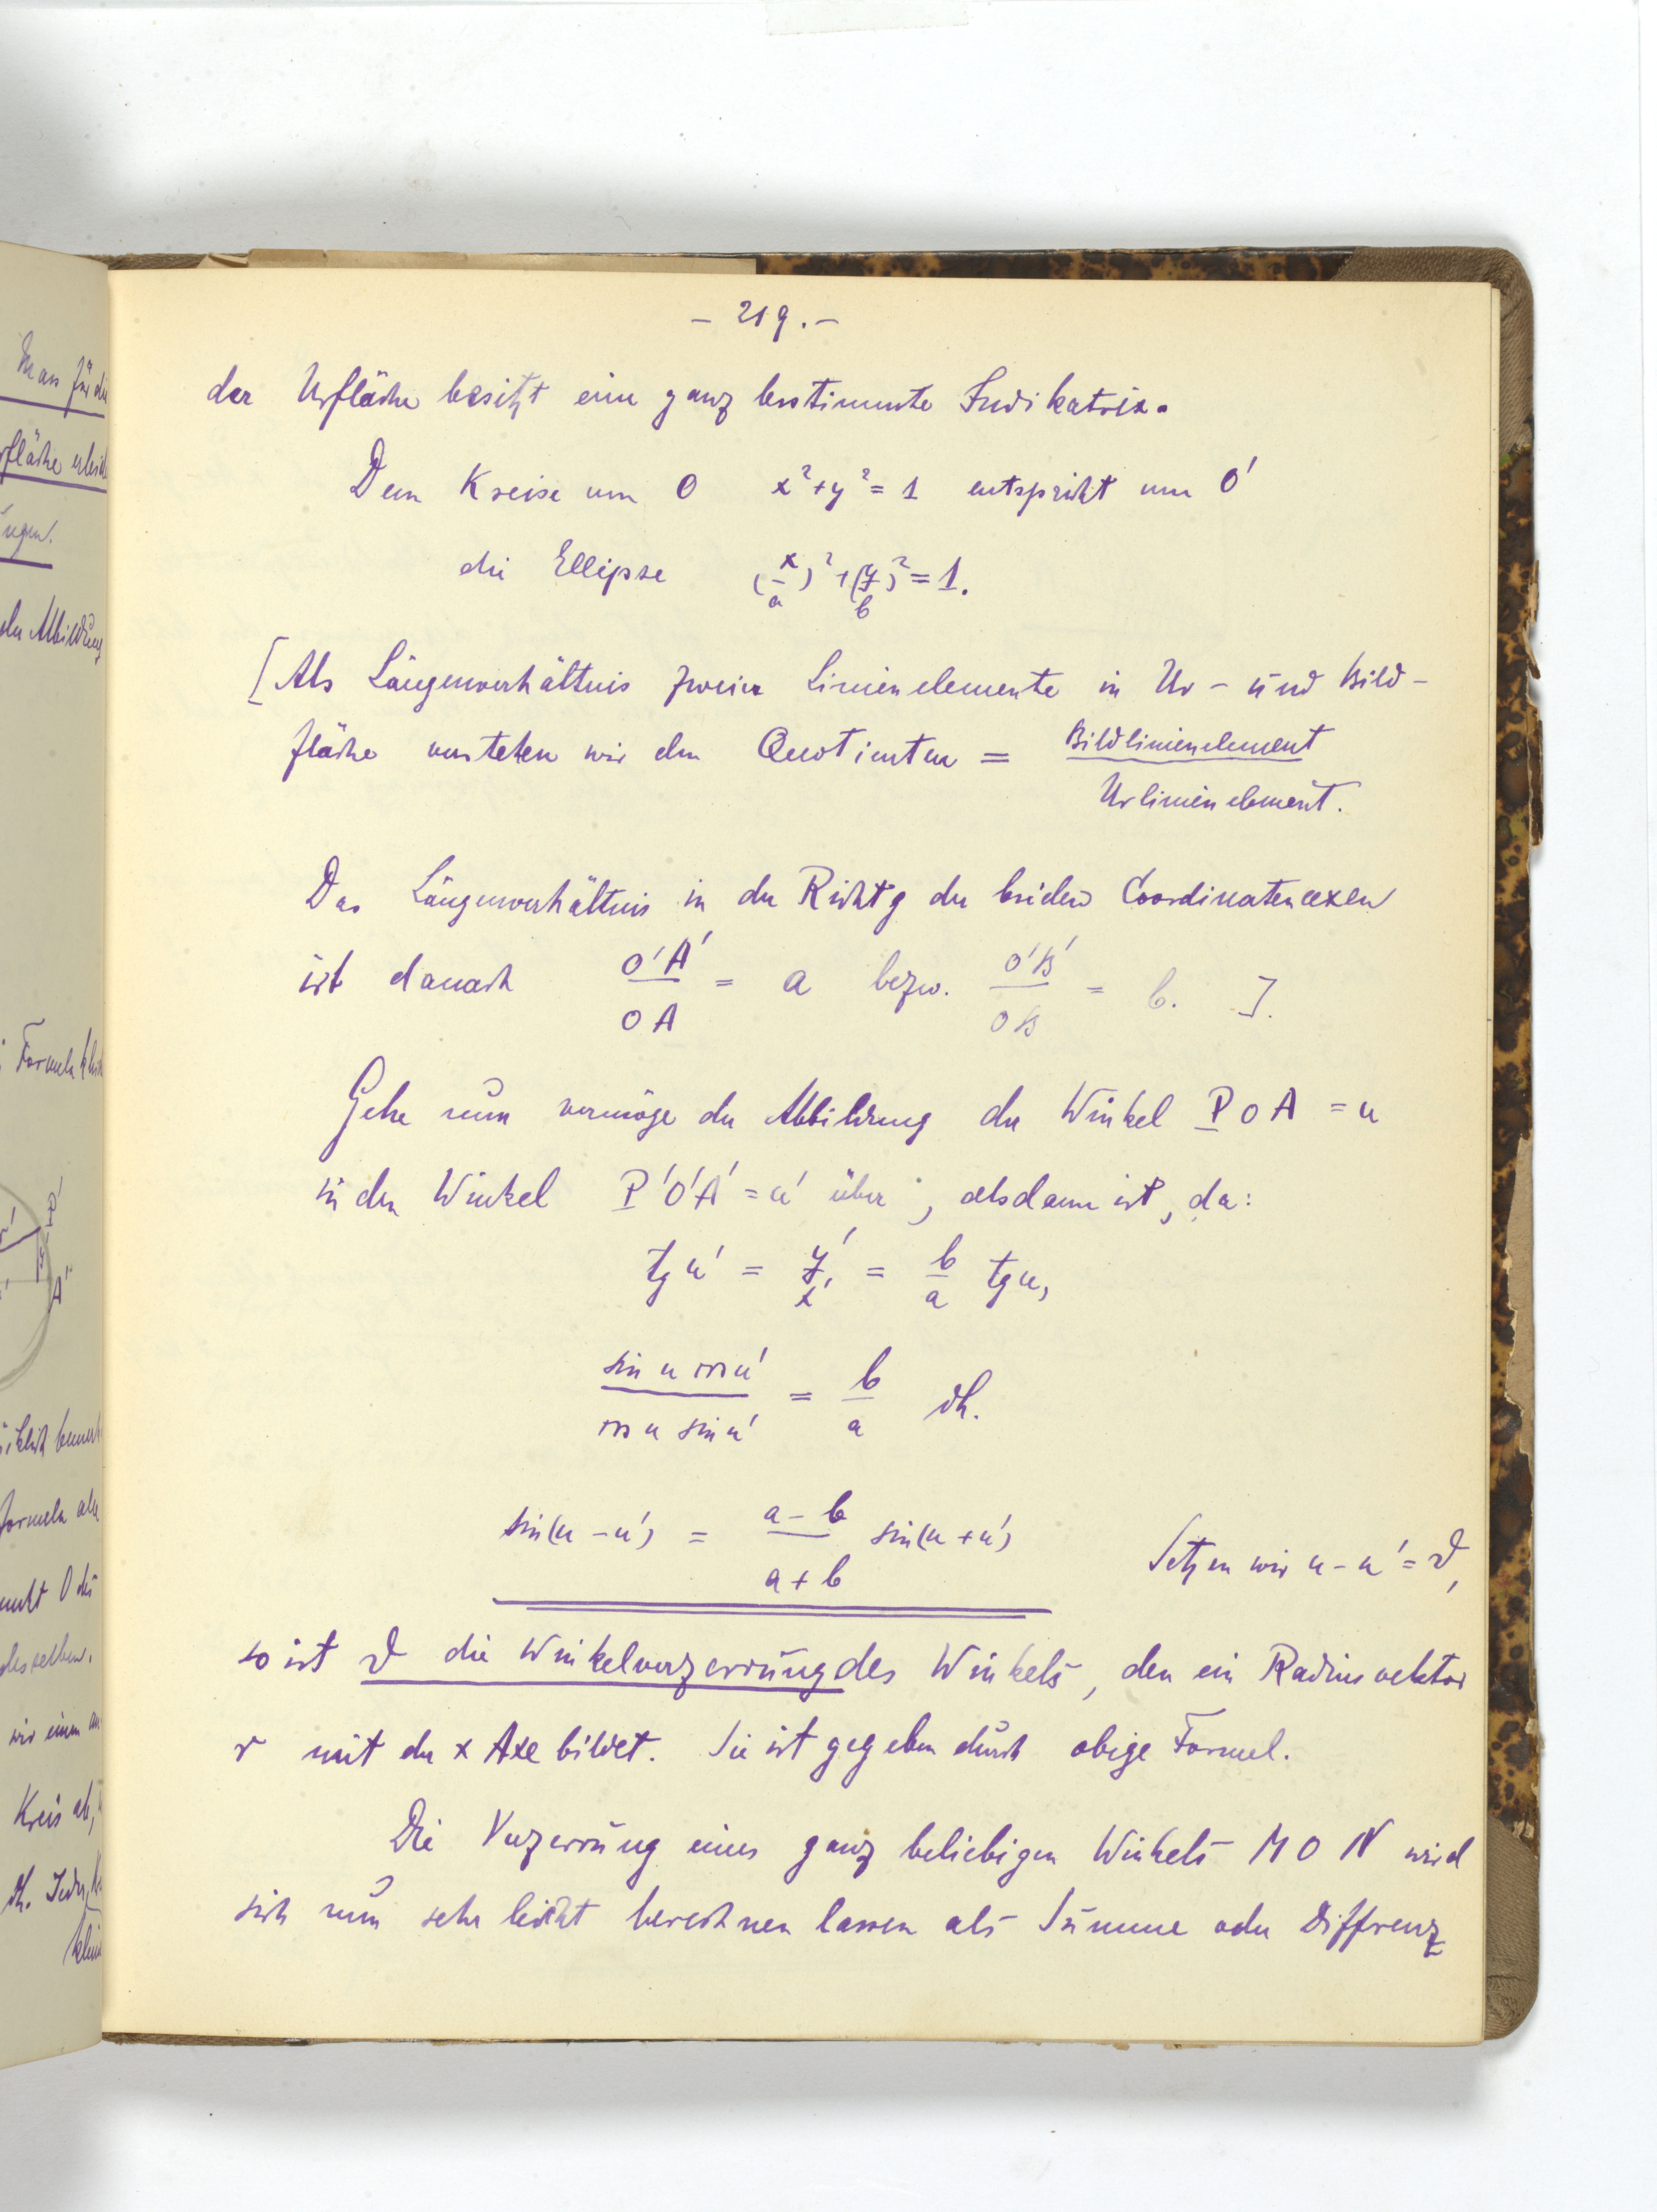 - 219. -
der Urfläche besitzt eine ganz bestimmte Indikatrix.
Dem Kreise um O x²+y² = 1 entspricht um O'
die Ellipse (x/a)² + (y/b)² = 1.
[Als Längenverhältnis zweier Linienelemente in Ur- und Bild-
fläche verstehen wir den Quotienten = Bildlinienelement
Urlinienelement.
Das Längenverhältnis in der Richtg der beiden Coordinatenaxen
ist danach O'A'/OA = a bezw. O'B'/OB = b. ].
Gehe nun vermöge der Abbildung der Winkel POA = u
in den Winkel P'O'A' = u' über, alsdann ist, da:
tg u' = y'/x' = b/a tg u,
sin u cos u'/cos u sin u' = b/a dh.
sin(u - u') = a-b/a+b sin(u + u') Setzen wir u - u' = ϑ,
so ist ϑ die Winkelverzerrung des Winkels, den ein Radiusvektor
r mit der x Axe bildet. Sie ist gegeben durch obige Formel.
Die Verzerrung eines ganz beliebigen Winkels MON wird
sich nun sehr leicht berechnen lassen als Summe oder Differenz
Man für die
Formeln
A'
Kreis ab,
dh. Jeder